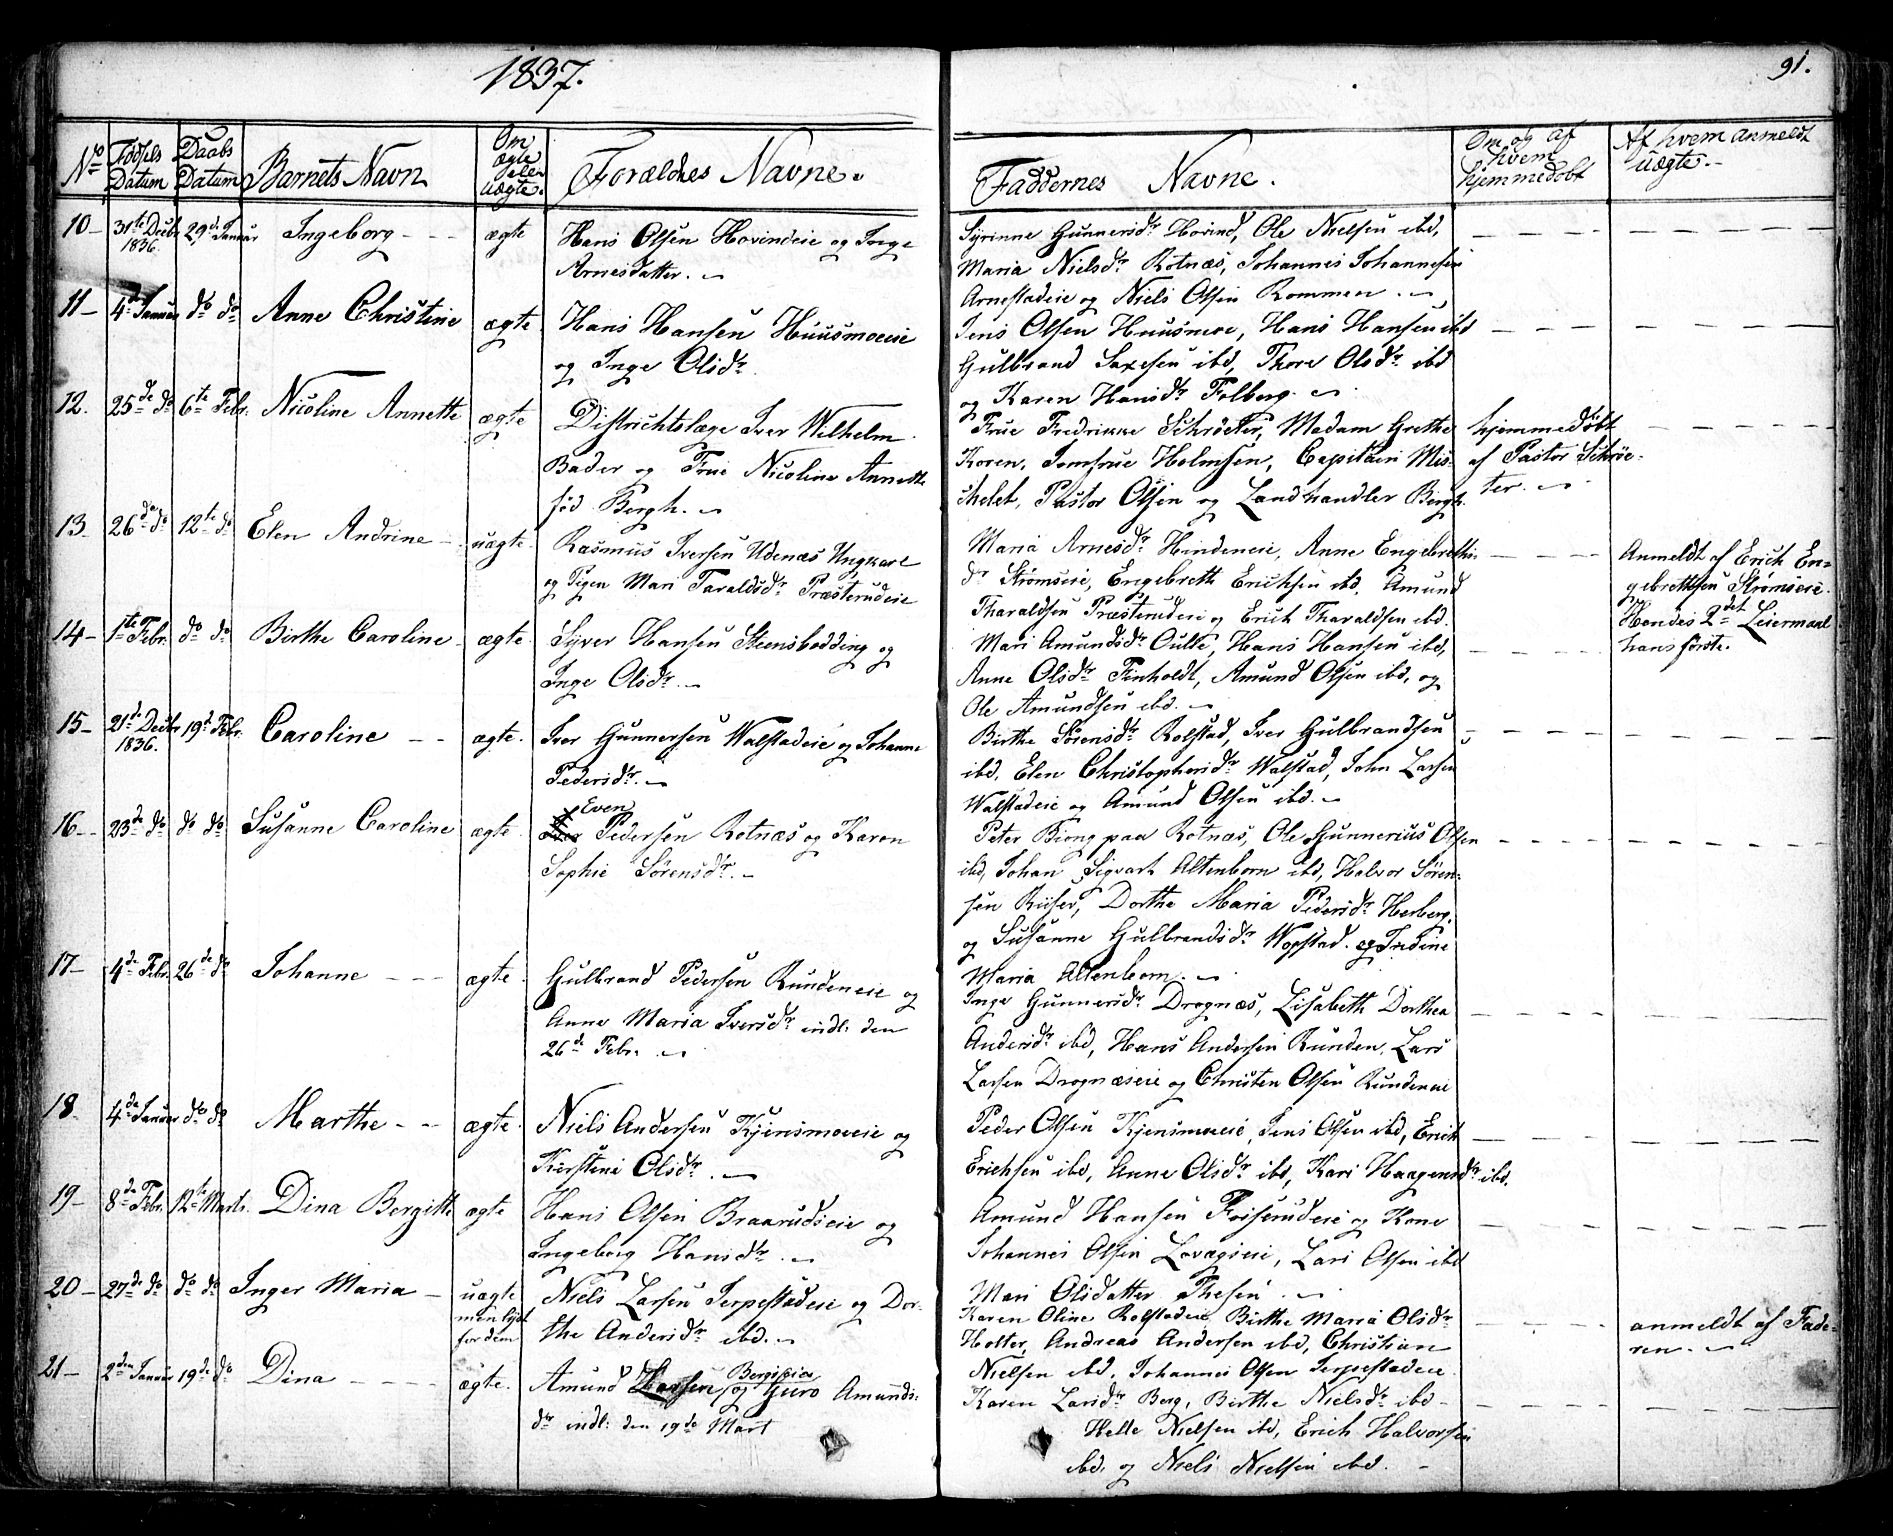 1837.
91.
No
Fødsels Datum
Daabs Datum
Barnets Navn
Om ægte eler uægte.
Forældres Navne.
Faddernes Navne.
Om og af hvem hjemmedøbt
Af hvem anmeldt uægte.
10 – 31te Decbr 1836. 29de Januar Ingeborg – – – ægte
Hans Olsen Hovindeie og Inge
Arnesdatter.
Syrinne Gunnersdr Hovind, Ole Nielsen ibd,
Maria Nielsdr Rotnæs, Johannes Johannesen
Arnestadeie og Niels Olsen Rommen.
11 – 4de Januar do do Anne Christine ægte
Hans Hansen Huusmoeeie
og Inge Olsdr.
Jens Olsen Huusmoe, Hans Hansen ibd
Gulbrand Saxesen ibd, Thore Olsdr ibd
og Karen Hansdr Folberg.
12. 25de do 6te Febr. Nicoline Annette ægte
Districhtslæge Iver Wilhelm
Bader og Frue Nicoline Annette
fød Bergh.
Frue Fredrikke Schrøeter, Madam Grethe
Koren, Jomfrue Holmsen, Capitain Mis-
chelet, Pastor Olsen og Landhandler Bergh.
hjemmedøbt
af Pastor Schrøe-
ter.
13. 26de do 12te do Elen Andrine – uægte
Rasmus Iversen Udenæs Ungkarl
og Pigen Mari Taraldsdr Præsterudeie
Maria Arnesdr Hindeneie, Anne Engebreths-
dr Strømseie, Engebreth Erichsen ibd, Amund
Tharaldsen Præsterudeie og Erich Tharaldsen ibd.
Anmeldt af Erich En-
gebrethsen Strømseie.
Hendes 2det Leiermaal
hans første.
14 – 1te Febr. do do Birthe Caroline – ægte
Syver Hansen Steensbødding og
Inge Olsdr.
Mari Amundsdr Oulie, Hans Hansen ibd,
Anne Olsdr Finholdt, Amund Olsen ibd, og
Ole Amundsen ibd.
15 – 21de Decbr 1836. 19de Febr. Caroline – – ægte
Iver Gunnersen Walstadeie og Johanne
Pedersdr.
Birthe Sørensdr Rolstad, Iver Gulbrandsen
ibd, Elen Christophersdr Walstad, John Larsen
Walstadeie og Amund Olsen ibd.
16 – 23de do do do Susanne Caroline ægte
Even
Iver Pedersen Rotnæs og Karen
Sophie Sørensdr.
Peter Biong paa Rotnæs, Ole Gunnerius Olsen
ibd, Johan Sigvart Altenborn ibd, Halvor Søren-
sen Riiser, Dorthe Maria Pedersdr Herberg,
og Susanne Gulbrandsdr Wopstad. og Tredine
Maria Altenborn.
17 – 4de Febr. 26de do Johanne – – – ægte
Gulbrand Pedersen Rundeneie og
Anne Maria Iversdr indl: den
26de Febr.
Inge Gunnersdr Drognæs, Lisabeth Dorthea
Andersdr ibd, Hans Andersen Runden, Lars
Larsen Drognæseie og Christen Olsen Rundeneie
18. 4de Januar do do Marthe – – ægte
Niels Andersen Kjensmoeeie og
Kerstine Olsdr.
Peder Olsen Kjensmoeeie, Jens Olsen ibd, Erich
Erichsen ibd, Anne Olsdr ibd, Kari Haagensdr ibd.
19 – 8de Febr. 12te Marts. Dina Bergitte ægte
Hans Olsen Braarudseie og
Ingeborg Hansdr.
Amund Hansen Foiserudeie og Kone
Johannes Olsen Lovægseie, Lars Olsen ibd
Mari Olsdatter Thesen.
20 – 27de do do do Inger Maria – uægte
men lyst
for dem
Niels Larsen Terpestadeie og Dor-
the Andersdr ibd.
Karen Oline Rolstadeie, Birthe Maria Olsdr
Holter, Andreas Andersen ibd, Christian
Nielsen ibd, Johannes Olsen Terpestadeie
anmeldt af Fade-
ren.
21 – 2den Januar 19de do Dina – – – – ægte.
Bergseie
Amund Larsen og Guro Amunds-
dr indl: den 19de Mart
Karen Larsdr Berg, Birthe Nielsdr ibd –
Helle Nielsen ibd, Erich Halvorsen
ibd, og Niels Nielsen ibd. –